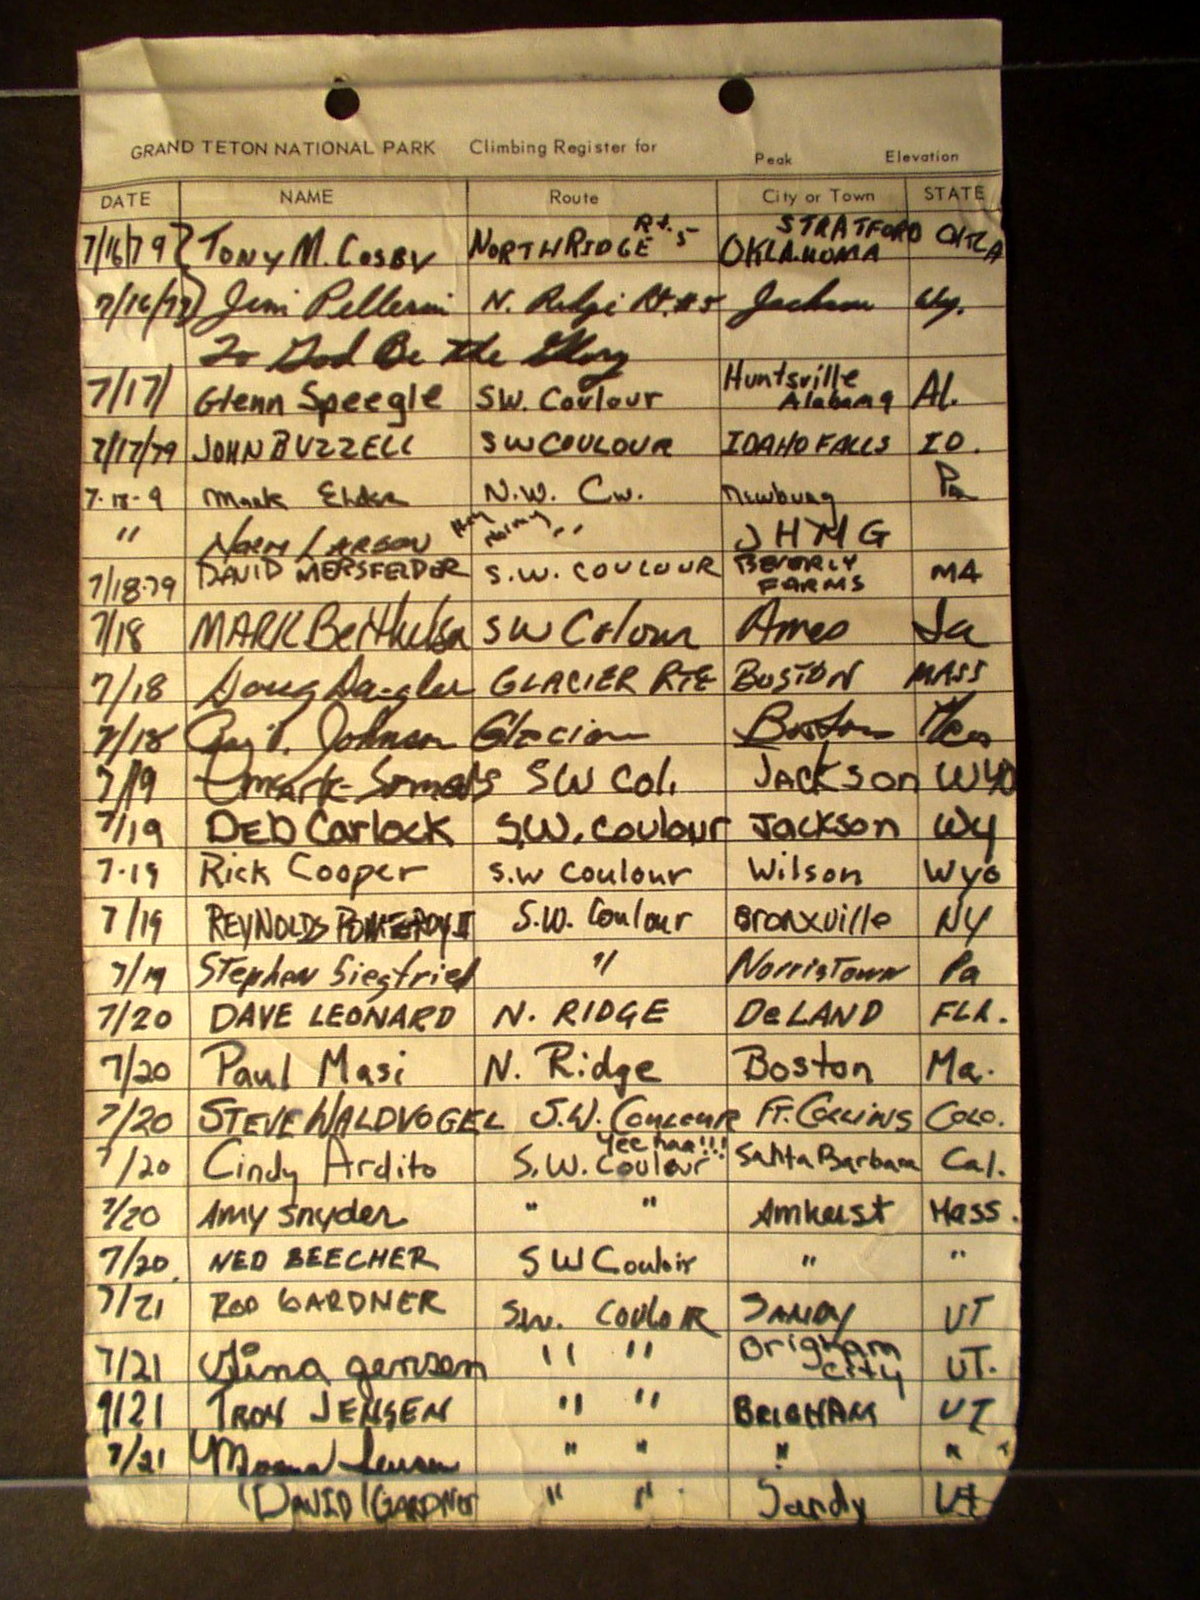 GRAND TETON NATIONAL PARK Climbing Register for Peak Elevation
DATE NAME Route City or Town STATE
7/16/79 TONY M. COSBY NORTH RIDGE Rt. 5 STRATFORD OKLAHOMA OKLA
7/16/79 Jim Pellerin N. Ridge Rt. #5 Jackson Wy.
To God Be the Glory
7/17/ Glenn Speegle SW. Coulour Huntsville Alabama Al.
7/17/79 JOHN BUZZELL SW COULOUR IDAHO FALLS ID.
7-18-9 Mark N.W. Cw. Newburg Pa
" NORM LARSON Hey Normy " J H M G
7/18-79 DAVID MERSFELDER S.W. COULOUR BEVERLY FARMS MA
7/18 MARK SW Colour Ames Ia
7/18 Doug GLACIER RTE BOSTON MASS
7/18 Johnson Glacier Boston Mass
7/19 Mark SW Col. JACKSON WYO
7/19 DEB Carlock S.W. Coulour Jackson Wy
7-19 Rick Cooper S.W Coulour Wilson Wyo
7/19 REYNOLDS POMEROY II S.W. Coulour Bronxville NY
7/19 Stephen Siegfried " Norristown Pa
7/20 DAVE LEONARD N. RIDGE DeLAND FLA.
7/20 Paul Masi N. Ridge Boston Ma.
7/20 STEVE WALDVOGEL S.W. COULOUR FT. COLLINS COLO.
7/20 Cindy Ardito S.W. Coulour Yee haa!!! Santa Barbara Cal.
7/20 Amy Snyder " " Amherst Mass.
7/20 NED BEECHER SW Couloir " "
7/21 ROD GARDNER SW. COULOIR SANDY UT
7/21 Gina Jensen " " Brigham City UT.
9/21 TROY JENSEN " " BRIGHAM UT
7/21 Jensen " " " "
DAVID GARDNER " " Sandy Ut